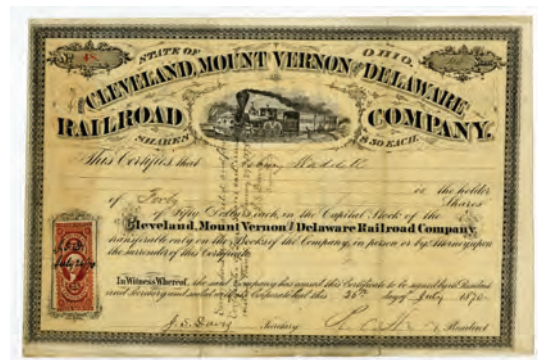 STATE OF OHIO.
CLEVELAND, MOUNT VERNON and DELAWARE
RAILROAD COMPANY.
SHARES $50 EACH.
This Certifies, that
is the holder
of Forty Shares
of Fifty Dollars each, in the Capital Stock of the
Cleveland, Mount Vernon and Delaware Railroad Company,
transferable only on the Books of the Company, in person or by Attorney upon
the surrender of this Certificate.
In Witness Whereof, the said Company has caused this Certificate to be signed by its President
and Secretary and sealed with its Corporate Seal this 26th day of July 1870
Secretary President